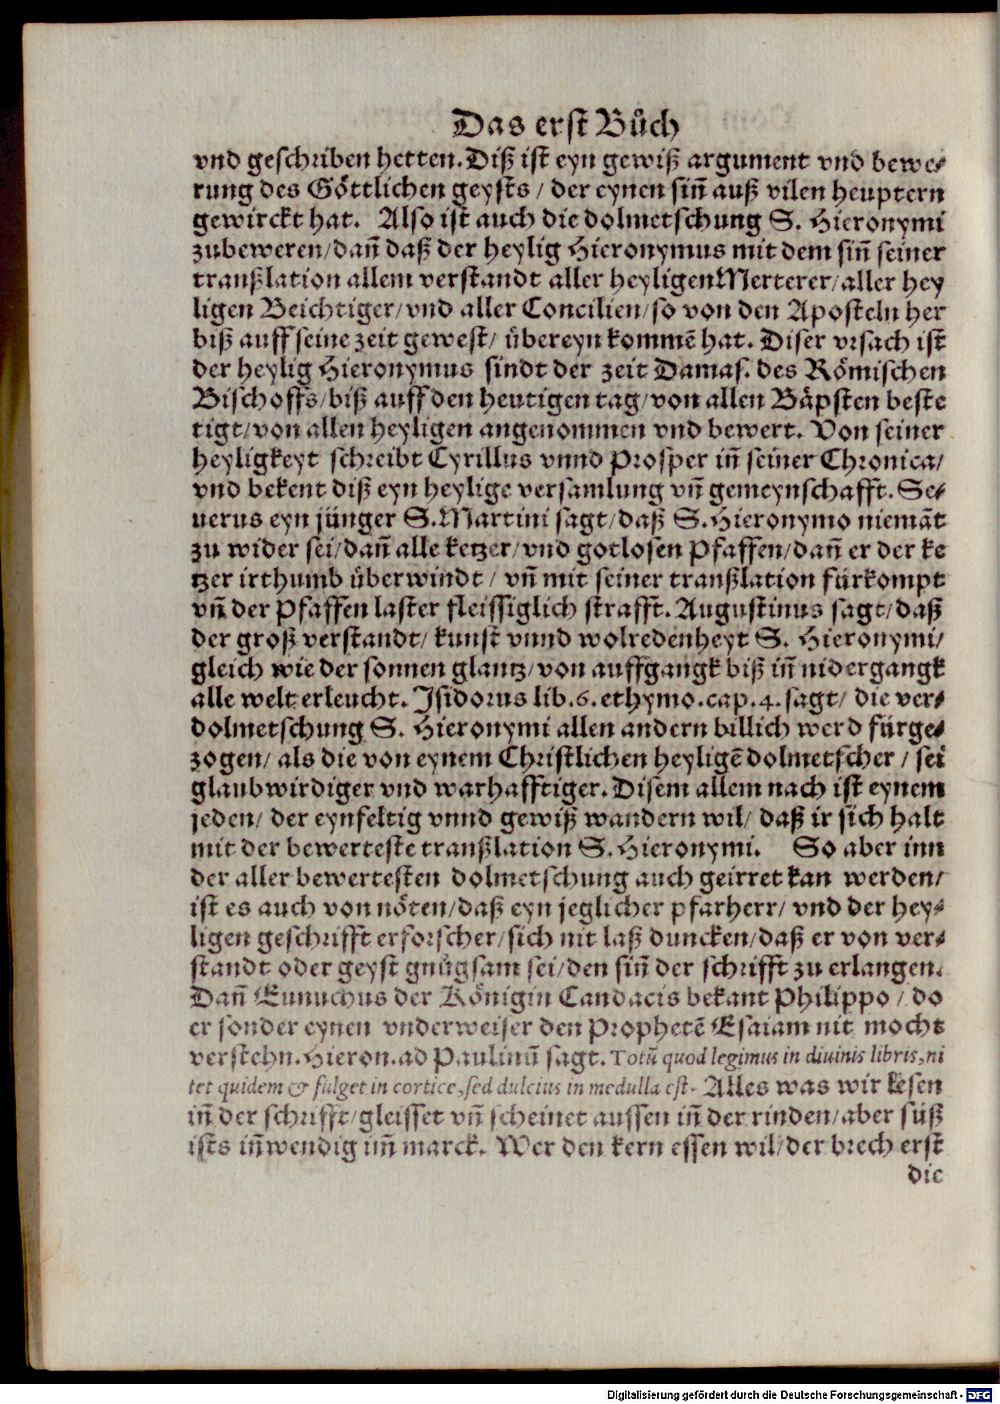 Das erst Bůch
vnd geschriben hetten. Diß ist eyn gewiß argument vnd bewe-
rung des Göttlichen geysts / der eynen siñ auß vilen heuptern
gewirckt hat. Also ist auch die dolmetschung S. Hieronymi
zubeweren/dañ daß der heylig Hieronymus mit dem siñ seiner
tranßlation allem verstandt aller heyligen Merterer/aller hey
ligen Beichtiger/vnd aller Concilien/so von den Aposteln her
biß auff seine zeit gewest/ übereyn kommẽ hat. Diser vrsach ist
der heylig Hieronymus sindt der zeit Damas. des Römischen
Bischoffs/biß auff den heutigen tag/von allen Bäpsten beste
tigt/von allen heyligen angenommen vnd bewert. Von seiner
heyligkeyt schreibt Cyrillus vnnd Prosper iñ seiner Chronica/
vnd bekent diß eyn heylige versamlung vñ gemeynschafft. Se-
uerus eyn jünger S. Martini sagt/daß S. Hieronymo niemãt
zu wider sei/dañ alle ketzer/vnd gotlosen Pfaffen/dañ er der ke
tzer irthumb überwindt / vñ mit seiner tranßlation fürkompt
vñ der Pfaffen laster fleissiglich strafft. Augustinus sagt/daß
der groß verstandt/ kunst vnnd wolredenheyt S. Hieronymi/
gleich wie der sonnen glantz/von auffgangk biß iñ nidergangk
alle welt erleucht. Isidorus lib.6.ethymo.cap.4.sagt/ die ver-
dolmetschung S. Hieronymi allen andern billich werd fürge-
zogen/ als die von eynem Christlichen heyligẽ dolmetscher / sei
glaubwirdiger vnd warhafftiger. Disem allem nach ist eynem
jeden/ der eynfeltig vnnd gewiß wandern wil/ daß ir sich halt
mit der bewerteste tranßlation S. Hieronymi. So aber inn
der aller bewertesten dolmetschung auch geirret kan werden/
ist es auch von nöten/daß eyn jeglicher pfarherr/ vnd der hey-
ligen geschrifft erforscher/sich nit laß duncken/daß er von ver-
standt oder geyst gnůgsam sei/den siñ der schrifft zu erlangen.
Dañ Eunuchus der Königin Candacis bekant Philippo / do
er sonder eynen vnderweiser den Prophetẽ Esaiam nit mocht
verstehn. Hieron. ad Paulinũ sagt. Totũ quod legimus in diuinis libris, ni
tet quidem & fulget in cortice, sed dulcius in medulla est. Alles was wir lesen
iñ der schrifft/gleisset vñ scheinet aussen iñ der rinden/aber süß
ists iñwendig im̃ marck. Wer den kern essen wil/der brech erst
die
Digitalisierung gefördert durch die Deutsche Forschungsgemeinschaft - DFG